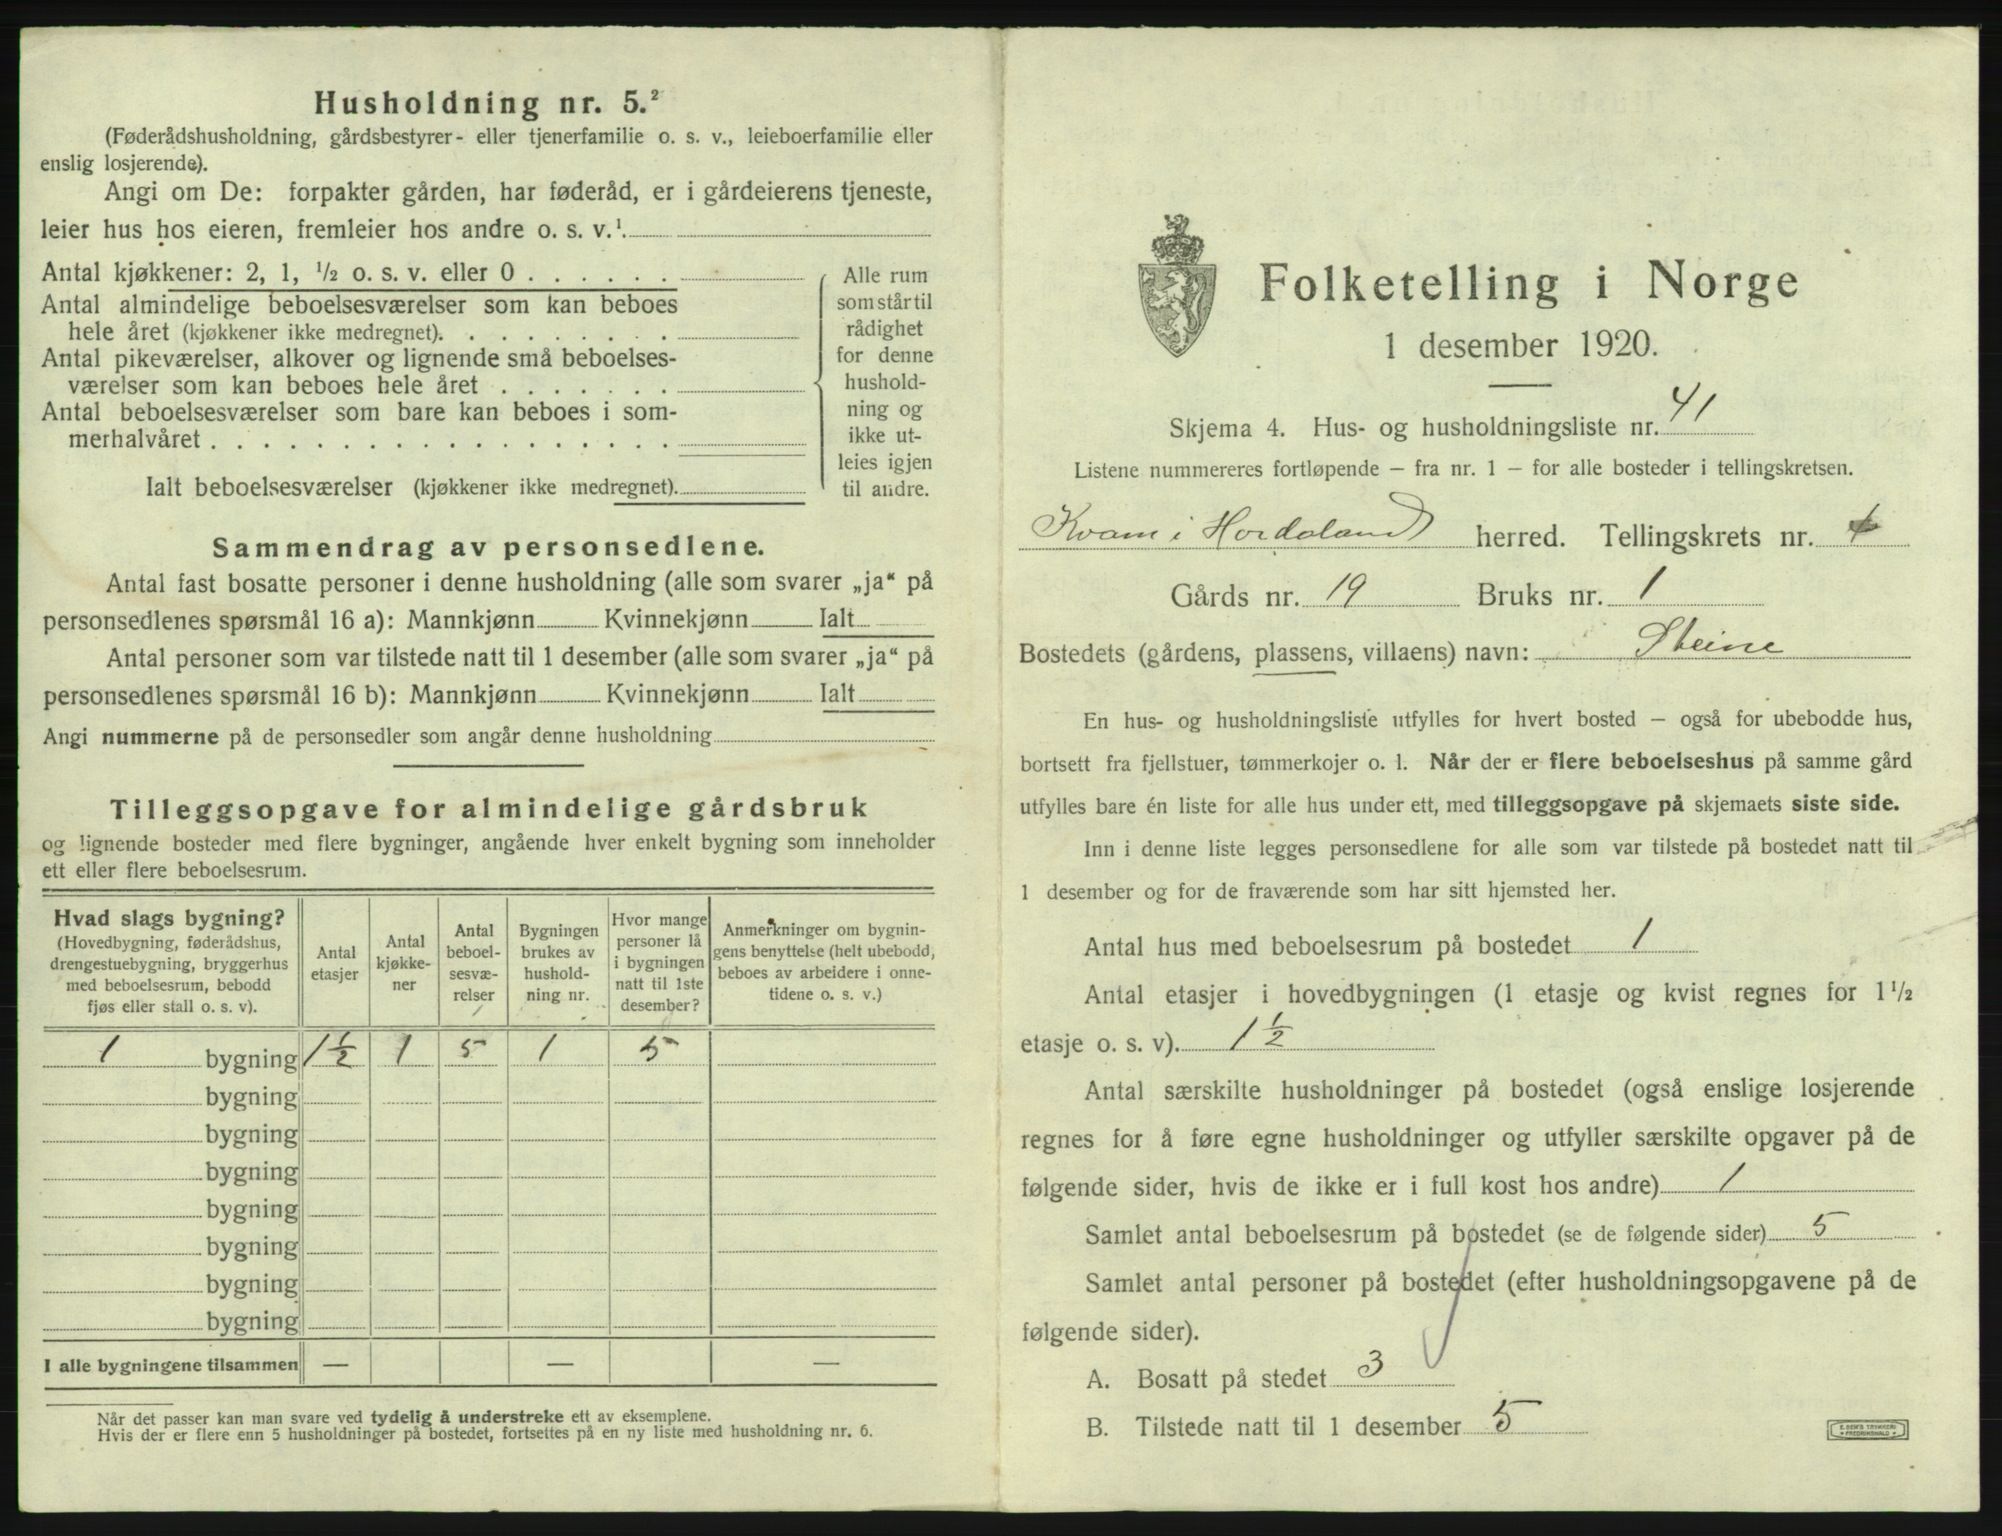 Husholdning nr. 5.²
(Føderådshusholdning, gårdsbestyrer- eller tjenerfamilie o. s. v., leieboerfamilie eller
enslig losjerende).
Angi om De: forpakter gården, har føderåd, er i gårdeierens tjeneste,
leier hus hos eieren, fremleier hos andre o. s. v.¹
Antal kjøkkener: 2, 1, ½ o. s. v. eller 0 . . . . . .
Antal almindelige beboelsesværelser som kan beboes
hele året (kjøkkener ikke medregnet). . . . . . . . .
Antal pikeværelser, alkover og lignende små beboelses-
værelser som kan beboes hele året . . . . . . .
Antal beboelsesværelser som bare kan beboes i som-
merhalvåret . . . . . . . . . . . . . . . . . .
Ialt beboelsesværelser (kjøkkener ikke medregnet).
Alle rum
som står til
rådighet
for denne
hushold-
ning og
ikke ut-
leies igjen
til andre.
Sammendrag av personsedlene.
Antal fast bosatte personer i denne husholdning (alle som svarer „ja“ på
personsedlenes spørsmål 16 a): Mannkjønn Kvinnekjønn Ialt
Antal personer som var tilstede natt til 1 desember (alle som svarer „ja“ på
personsedlenes spørsmål 16 b): Mannkjønn Kvinnekjønn Ialt
Angi nummerne på de personsedler som angår denne husholdning
Tilleggsopgave for almindelige gårdsbruk
og lignende bosteder med flere bygninger, angående hver enkelt bygning som inneholder
ett eller flere beboelsesrum.
Hvad slags bygning?
(Hovedbygning, føderådshus,
drengestuebygning, bryggerhus
med beboelsesrum, bebodd
fjøs eller stall o. s. v).
Antal
etasjer
Antal
kjøkke-
ner
Antal
beboel-
sesvæ-
relser
Bygningen
brukes av
hushold-
ning nr.
Hvor mange
personer lå
i bygningen
natt til 1ste
desember?
Anmerkninger om bygnin-
gens benyttelse (helt ubebodd,
beboes av arbeidere i onne-
tidene o. s. v.)
1 bygning 1½ 1 5 1 5
bygning
bygning
bygning
bygning
bygning
bygning
bygning
I alle bygningene tilsammen — — —
Når det passer kan man svare ved tydelig å understreke ett av eksemplene.
Hvis der er flere enn 5 husholdninger på bostedet, fortsettes på en ny liste med husholdning nr. 6.
Folketelling i Norge
1 desember 1920.
Skjema 4. Hus- og husholdningsliste nr. 41
Listene nummereres fortløpende – fra nr. 1 – for alle bosteder i tellingskretsen.
Kvam i Hordaland herred. Tellingskrets nr.
Gårds nr. 19 Bruks nr. 1
Bostedets (gårdens, plassens, villaens) navn: Steine
En hus- og husholdningsliste utfylles for hvert bosted – også for ubebodde hus,
bortsett fra fjellstuer, tømmerkojer o. l. Når der er flere beboelseshus på samme gård
utfylles bare én liste for alle hus under ett, med tilleggsopgave på skjemaets siste side.
Inn i denne liste legges personsedlene for alle som var tilstede på bostedet natt til
1 desember og for de fraværende som har sitt hjemsted her.
Antal hus med beboelsesrum på bostedet 1
Antal etasjer i hovedbygningen (1 etasje og kvist regnes for 1½
etasje o. s. v). 1½
Antal særskilte husholdninger på bostedet (også enslige losjerende
regnes for å føre egne husholdninger og utfyller særskilte opgaver på de
følgende sider, hvis de ikke er i full kost hos andre) 1
Samlet antal beboelsesrum på bostedet (se de følgende sider) 5
Samlet antal personer på bostedet (efter husholdningsopgavene på de
følgende sider).
A. Bosatt på stedet 3
B. Tilstede natt til 1 desember 5